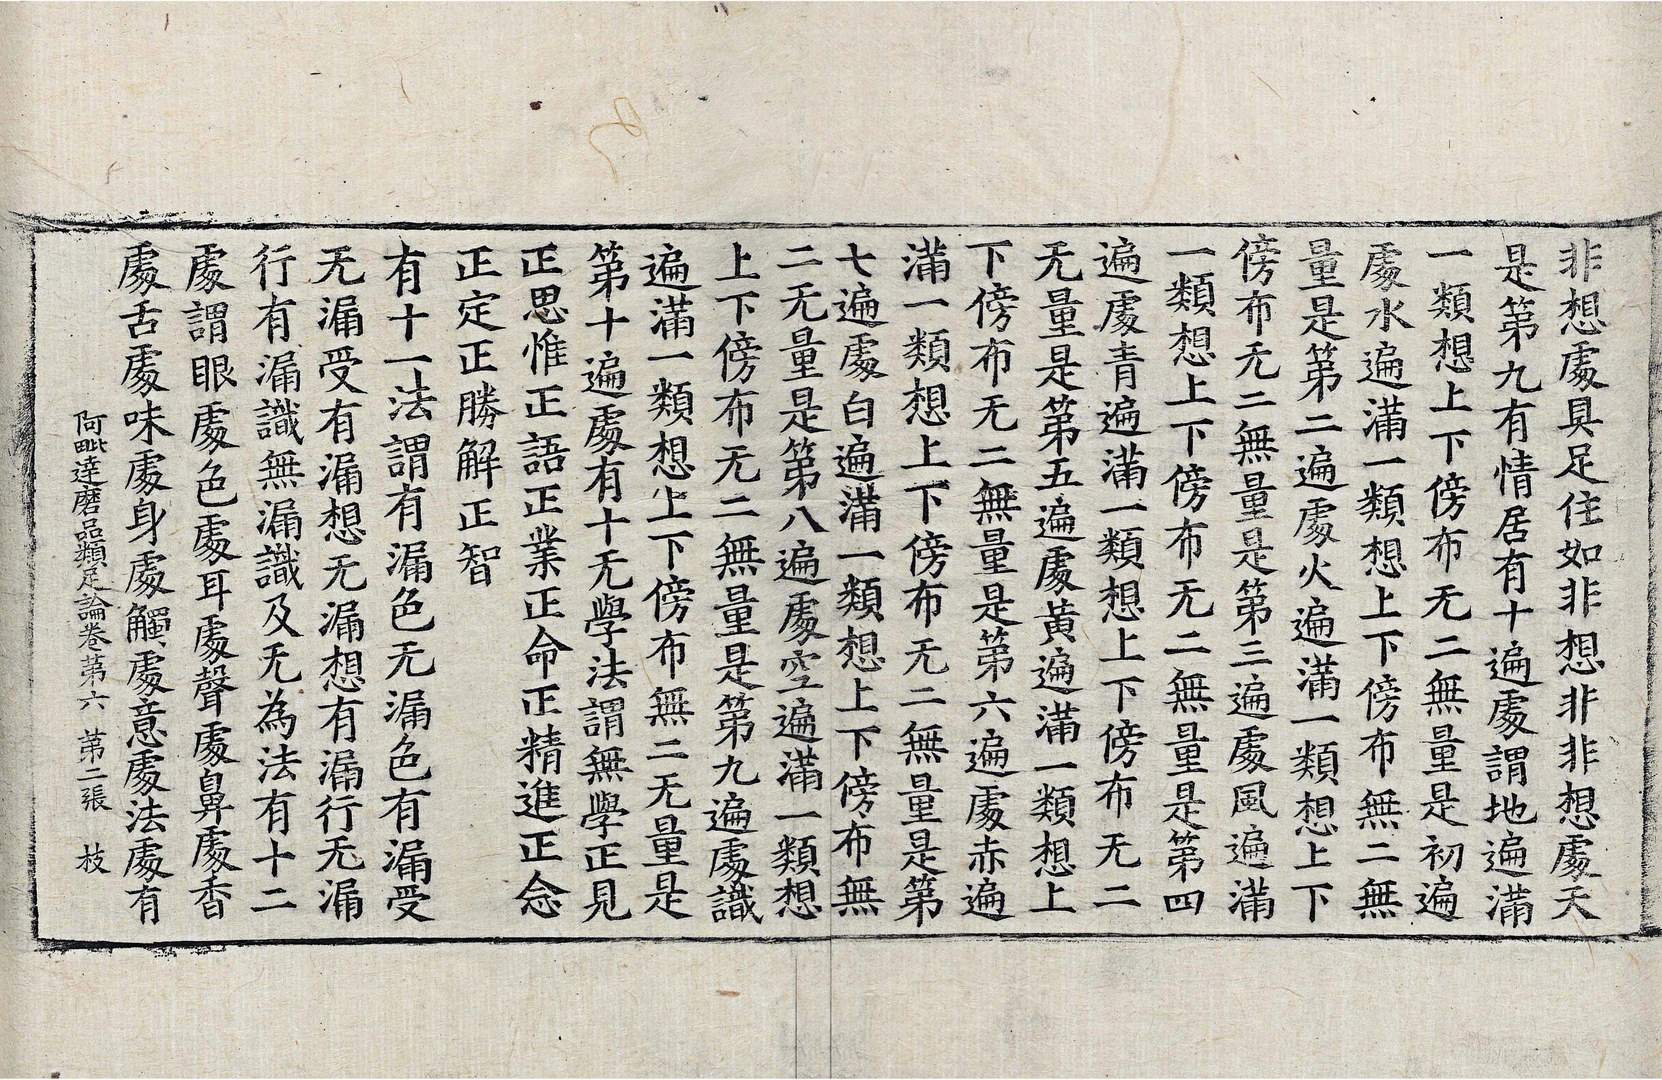 非想處具足住如非想非非想處天
是第九有情居有十遍處謂地遍滿
一類想上下傍布无二無量是初遍
處水遍滿一類想上下傍布無二無
量是第二遍處火遍滿一類想上下
傍布无二無量是第三遍處風遍滿
一類想上下傍布无二無量是第四
遍處青遍滿一類想上下傍布无二
无量是第五遍處黃遍滿一類想上
下傍布无二無量是第六遍處赤遍
滿一類想上下傍布无二無量是第
七遍處白遍滿一類想上下傍布無
二无量是第八遍處空遍滿一類想
上下傍布无二無量是第九遍處識
遍滿一類想上下傍布無二无量是
第十遍處有十无學法謂無學正見
正思惟正語正業正命正精進正念
正定正勝解正智
有十一法謂有漏色无漏色有漏受
无漏受有漏想无漏想有漏行无漏
行有漏識無漏識及无為法有十二
處謂眼處色處耳處聲處鼻處香
處舌處味處身處觸處意處法處有
阿毗達磨品類足論卷第六 第二張 枝